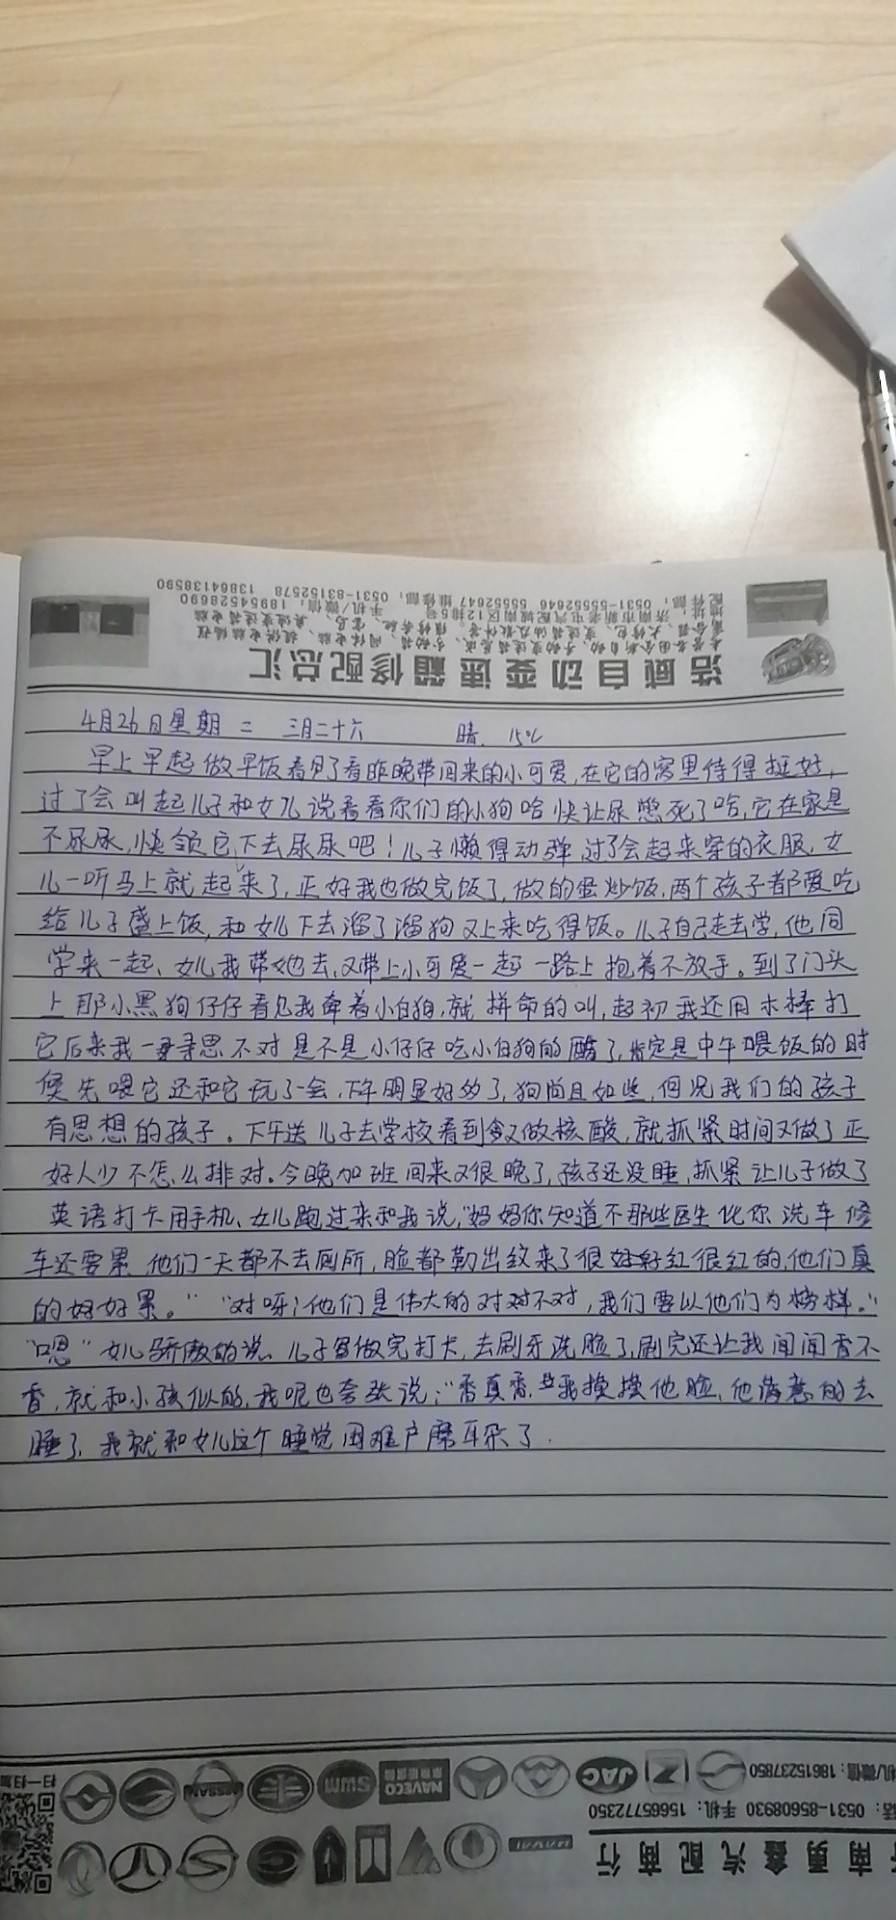 浩威自动变速箱修配总汇
地址：济南市新老屯汽配城南区12排5号
配件部：0531-55552646 55552647 维修部：0531-83152578 13864138590
手机/微信：18954528690
4月26日星期二 三月二十六 晴 15℃
早上早起做早饭看见了看昨晚带回来的小可爱,在它的窝里待得挺好,
过了会叫起儿子和女儿说看看你们的小狗哈快让尿憋死了哈,它在家是
不尿尿,快领它下去尿尿吧！儿子懒得动弹过了会起来穿的衣服,女
儿一听马上就起来了,正好我也做完饭了,做的蛋炒饭,两个孩子都爱吃
给儿子盛上饭,和女儿下去溜了溜狗又上来吃得饭。儿子自己走去学,他同
学来一起、女儿我带她去,又带上小可爱一起一路上抱着不放手。到了门头
上那小黑狗仔仔看见我牵着小白狗,就拼命的叫,起初我还用木棒打
它后来我一寻思不对是不是小仔仔吃小白狗的醋了,肯定是中午喂饭的时
候先喂它还和它玩了一会,下午明显好多了,狗尚且如些,但况我们的孩子
有思想的孩子。下午送儿子去学校看到又做核酸,就抓紧时间又做了正
好人少不怎么排对。今晚加班回来又很晚了,孩子还没睡,抓紧让儿子做了
英语打卡用手机、女儿跑过来和我说,"妈妈你知道不那些医生比你洗车修
车还要累 他们一天都不去厕所,脸都勒出纹来了很好红很红的,他们真
的好好累。" "对呀;他们是伟大的对对不对,我们要以他们为榜样。"
"嗯"女儿骄傲的说、儿子做完打卡,去刷牙洗脸了,刷完还让我闻闻香不
香,就和小孩似的,我呢也夸张说;"香真香,我摸摸他脸、他满意的去
睡了、我就和女儿这个睡觉困难户磨耳朵了.
南勇鑫汽配商行
0531-85608930 手机：15665772350
机/微信：18615237850
JAC
NAVECO
SWM
NISSAN
扫一扫加